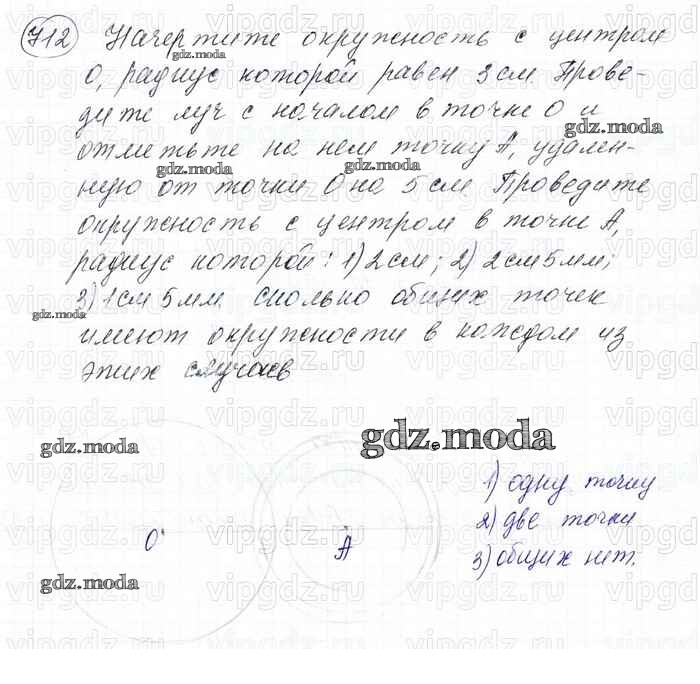 712 Начертите окружность с центром
О, радиус которой равен 3 см. Прове-
дите луч с началом в точке О и
отметьте на нем точку А, удален-
ную от точки О на 5 см. Проведите
окружность с центром в точке А,
радиус которой: 1) 2 см; 2) 2 см 5 мм;
3) 1 см 5 мм сколько общих точек
имеют окружности в каждом из
этих случаев
gdz.moda
1) одну точку
2) две точки
3) общих нет.
О
А